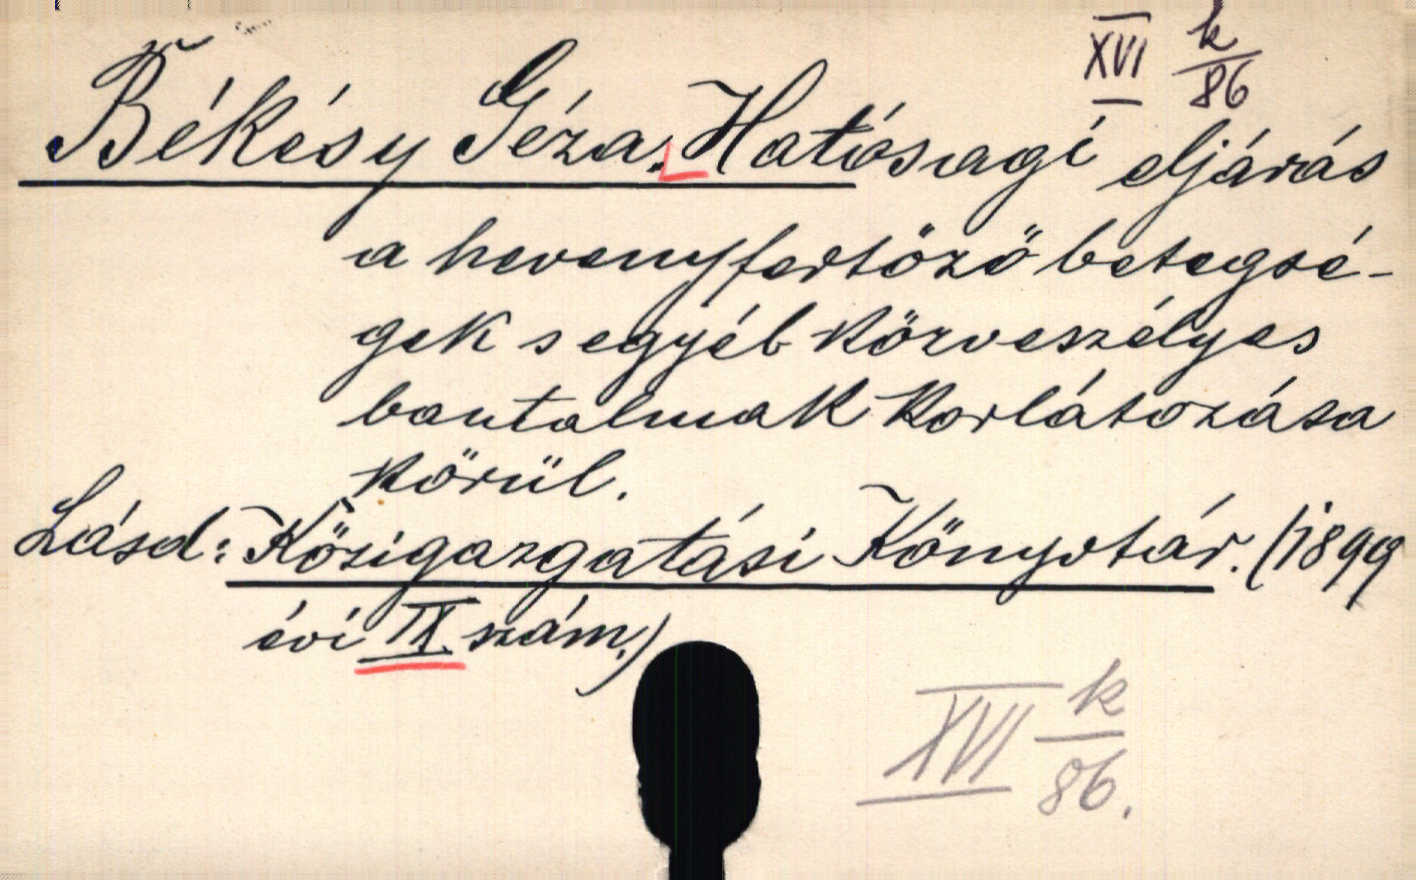 XVI k/86
Békésy Géza. Hatósagi eljárás
a hevenyfertöző betegsé-
gek s egyéb közveszélyes
bantalmak korlátozása
körül.
Lásd: Közigazgatási Könyvtár. (1899
évi IX. szám.)
XVI k/86.